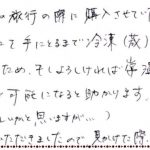 旅行の際に購入させてい
て手にとるまで冷凍(蔵)
ため、もしよろしければ常温
可能になると助かります。
しいかと思いますが…)
いただきましたので見かけた際